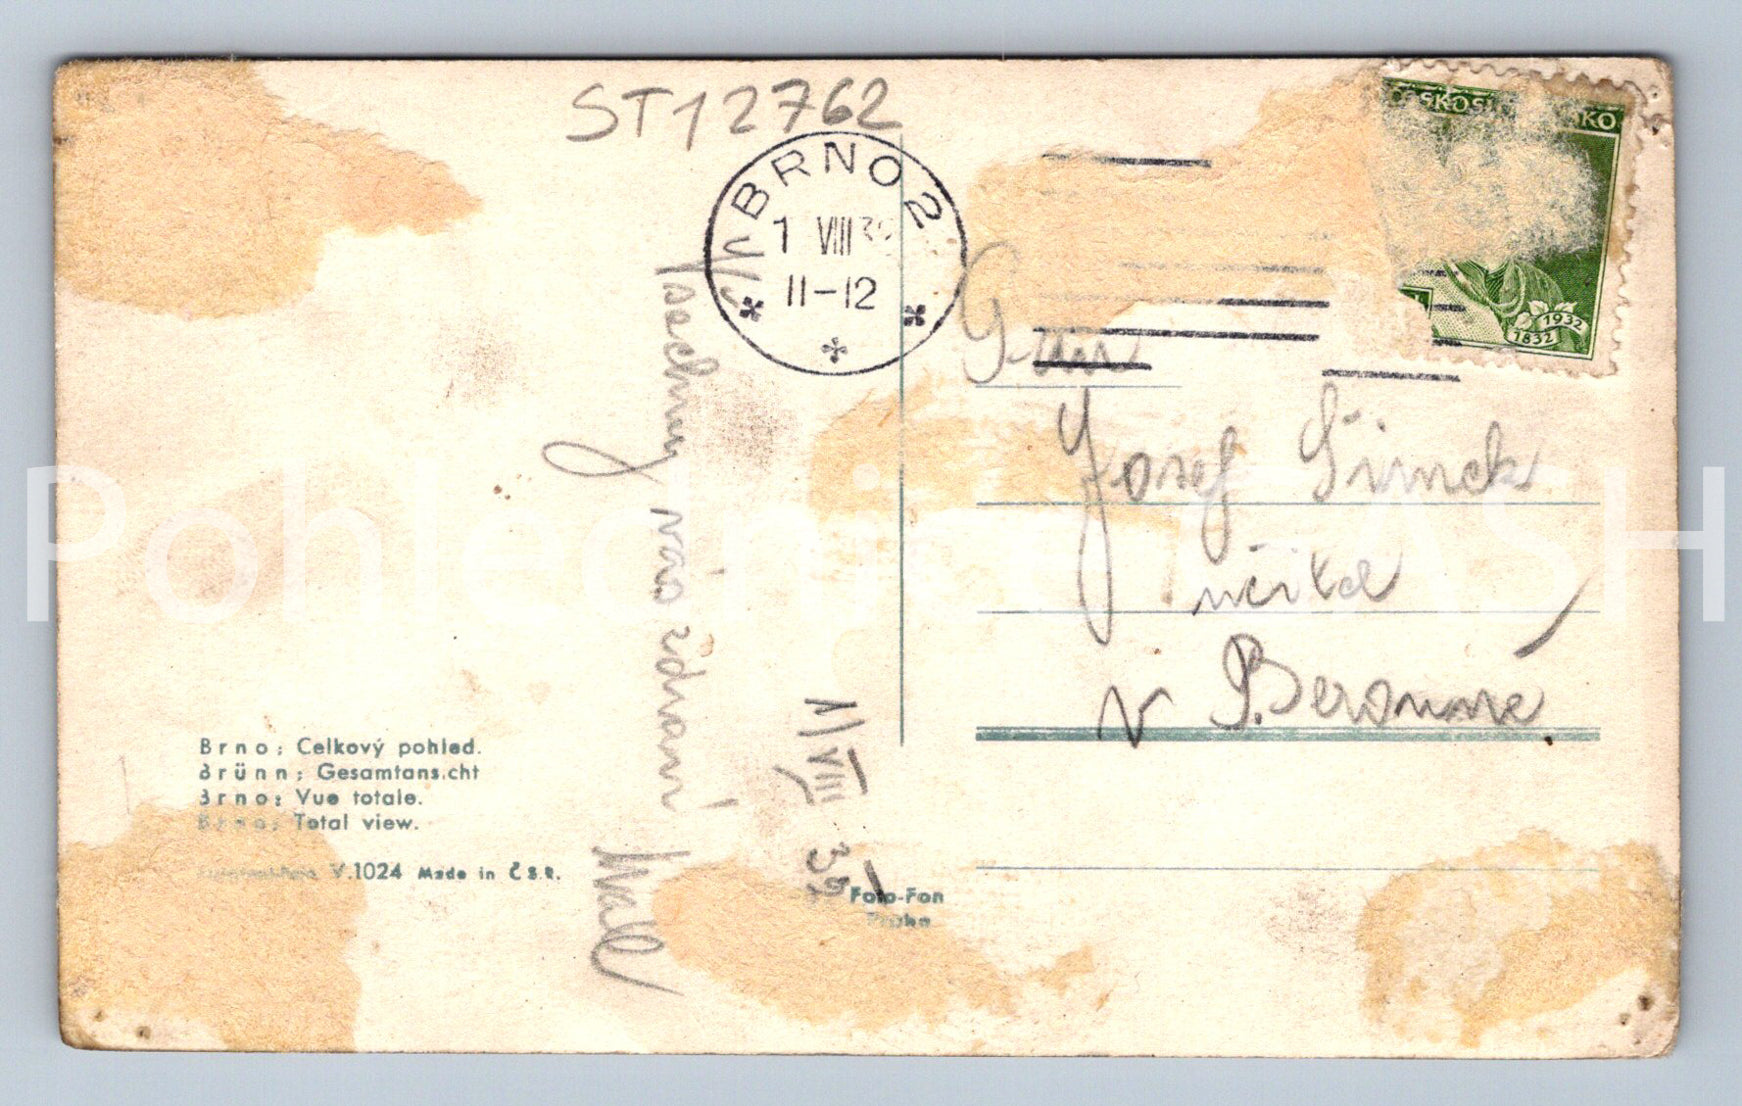 ST12762
BRNO 2
1 VIII 3
11-12
ČESKOSLO NSKO
1932
1832
Josef Šimek
učitel
v P. Berouně
Všechny vás zdraví
1/VIII 35
Brno: Celkový pohled.
Brünn: Gesamtansicht
Brno: Vue totale.
Brno: Total view.
V.1024 Made in Č.S.R.
Foto-Fon
Praha
Pohlednice ASH